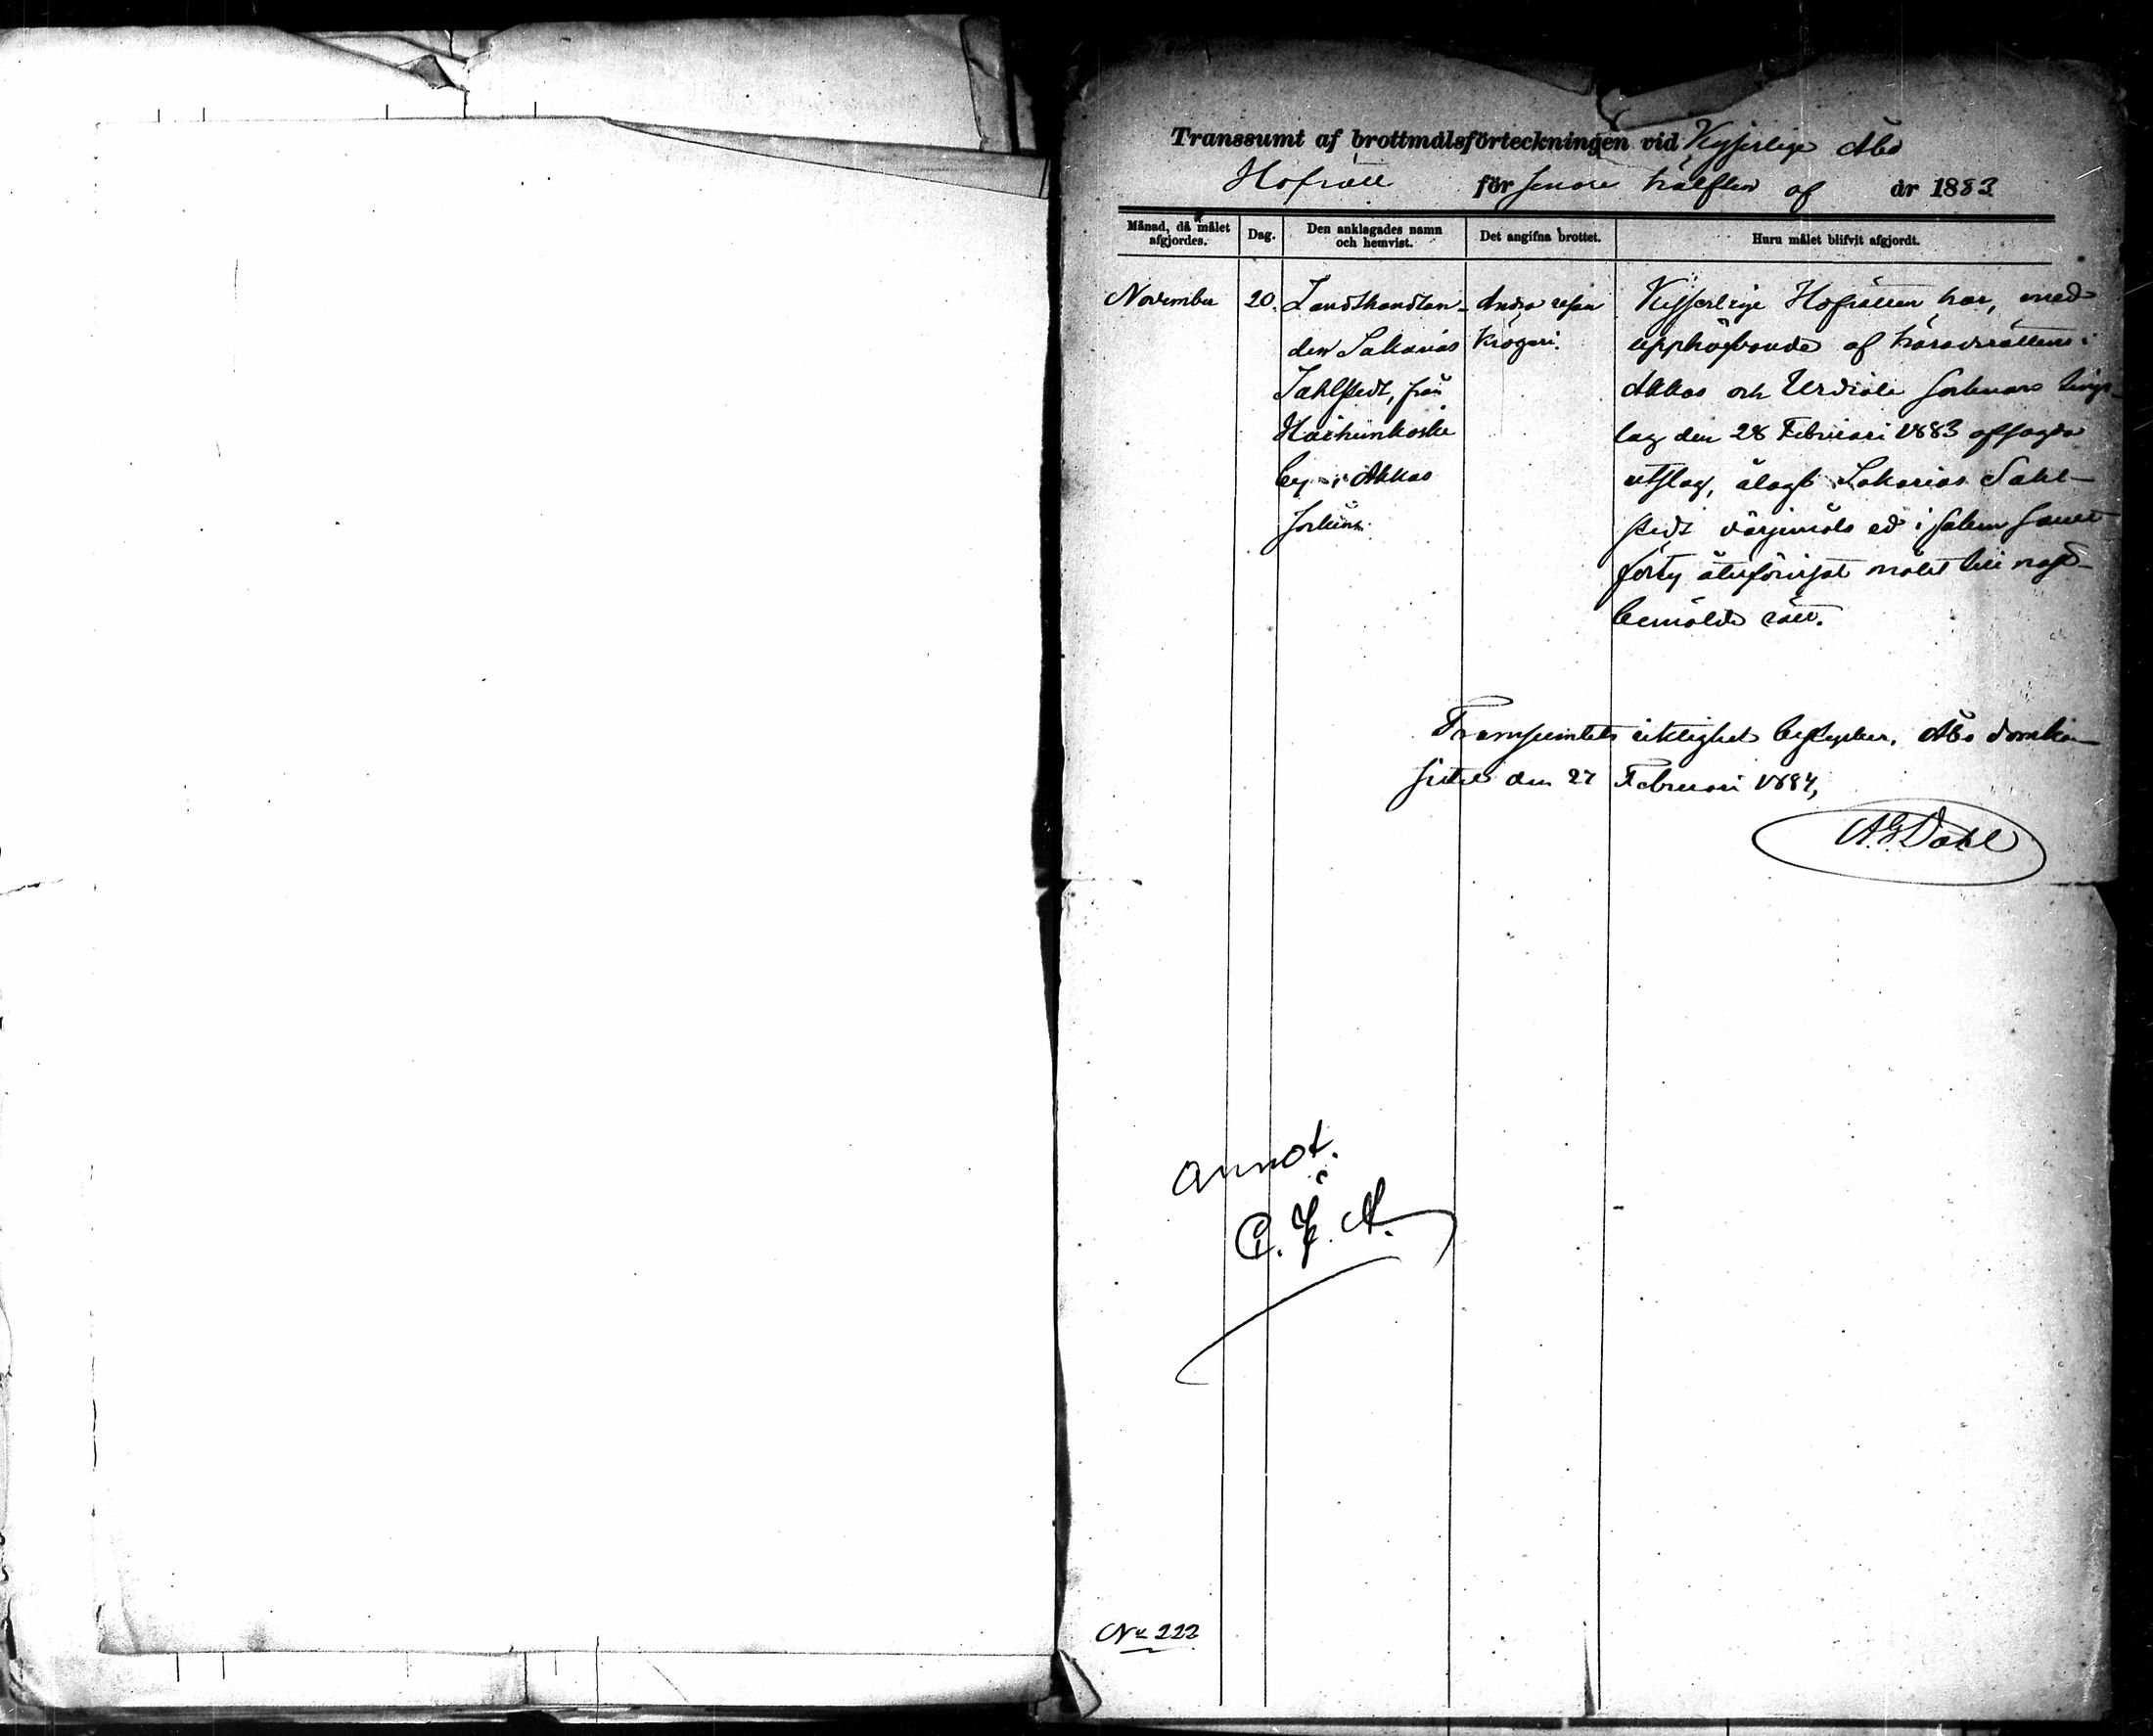 Transsumt af brottmålsförteckningen vid Kejserliga Åbo
Hofrätt för senare hälften af år 1883
Månad, då målet afgjordes. Dag. Den anklagades namn och hemvist. Det angifna brottet. Huru målet blifvit afgjordt.
November 20. Landthandlan- Andra resan Kejserliga Hofrätten har, med
den Sakarias krögeri. upphäfvande af häradsrättens i
Sahlstedt, från Akkas och Urdiala socknars tings-
Härhunkoski lag den 28 Februari 1883 afsagda
by i Akkas utslag, ålagt Sakarias Sahl-
socken. stedt värjemåls ed i saken samt
förty återförvisat målet till nyss-
bemälde rätt.
Transsumtets riktighet bestyrker, Åbo domka-
pitel den 27 Februari 1884,
A. G. Dahl
annot.
i
Nr 222